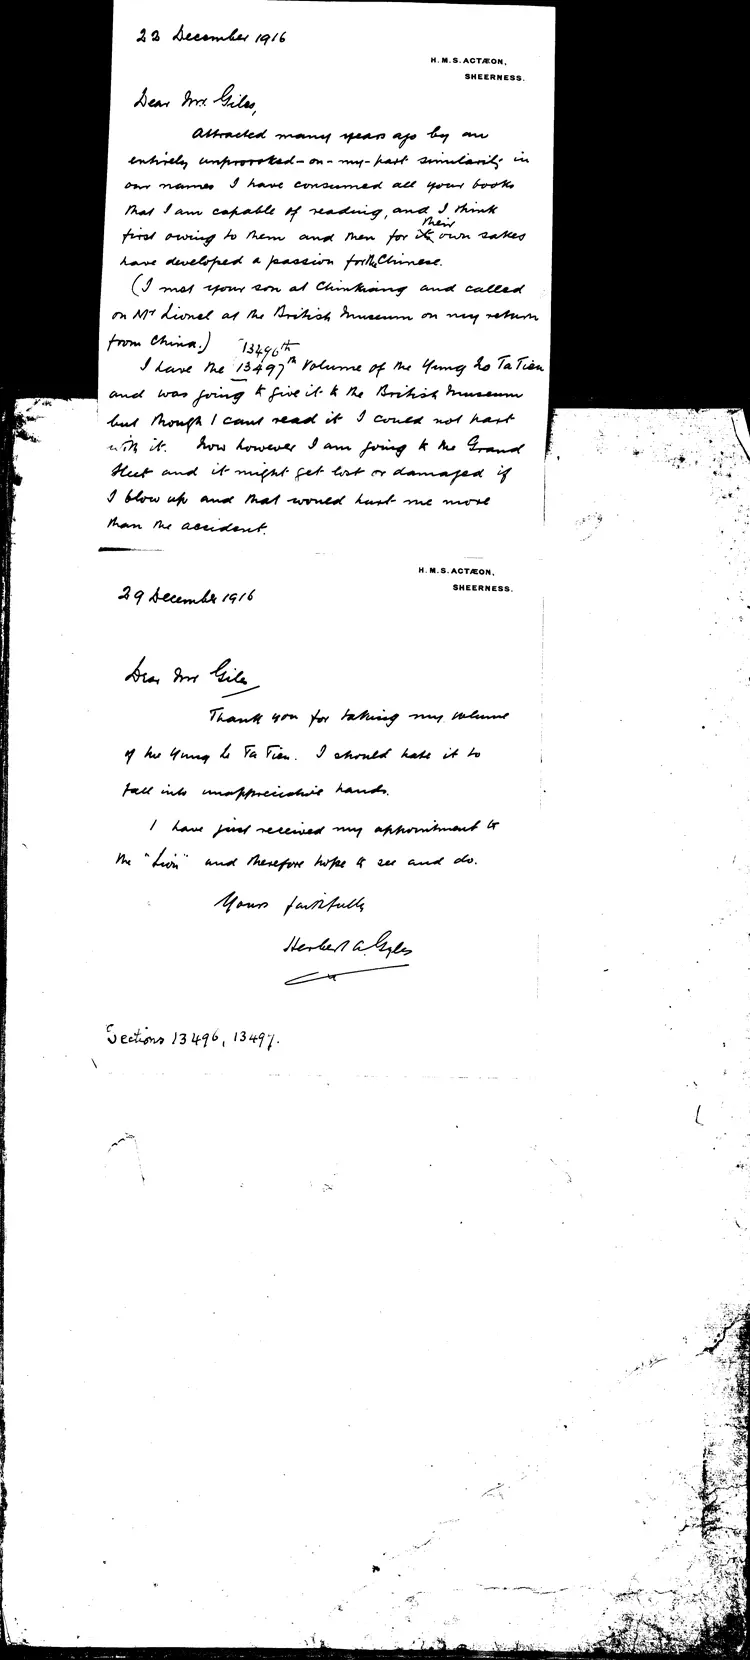 22 December 1916
H.M.S. ACTÆON,
SHEERNESS.
Dear Mr. Giles,
Attracted many years ago by an
entirely unprovoked-on-my-part similarity in
our names I have consumed all your books
that I am capable of reading, and I think
their
first owing to them and then for its own sakes
have developed a passion for the Chinese.
(I met your son at Chinkiang and called
on Mr Lionel at the British Museum on my return
from China.)
13496th
I have the 13497th Volume of the Yung Lo Ta Tien
and was going to give it to the British Museum
but though I cant read it I could not part
with it. Now however I am going to the Grand
Fleet and it might get lost or damaged if
I blow up and that would hurt me more
than the accident.
H.M.S. ACTÆON,
SHEERNESS.
29 December 1916
Dear Mr Giles
Thank you for taking my volume
of the Yung Lo Ta Tien. I should hate it to
fall into unappreciative hands.
I have just received my appointment to
the "Lion" and therefore hope to see and do.
Yours faithfully
Herbert A. Gyles
Sections 13496, 13497.